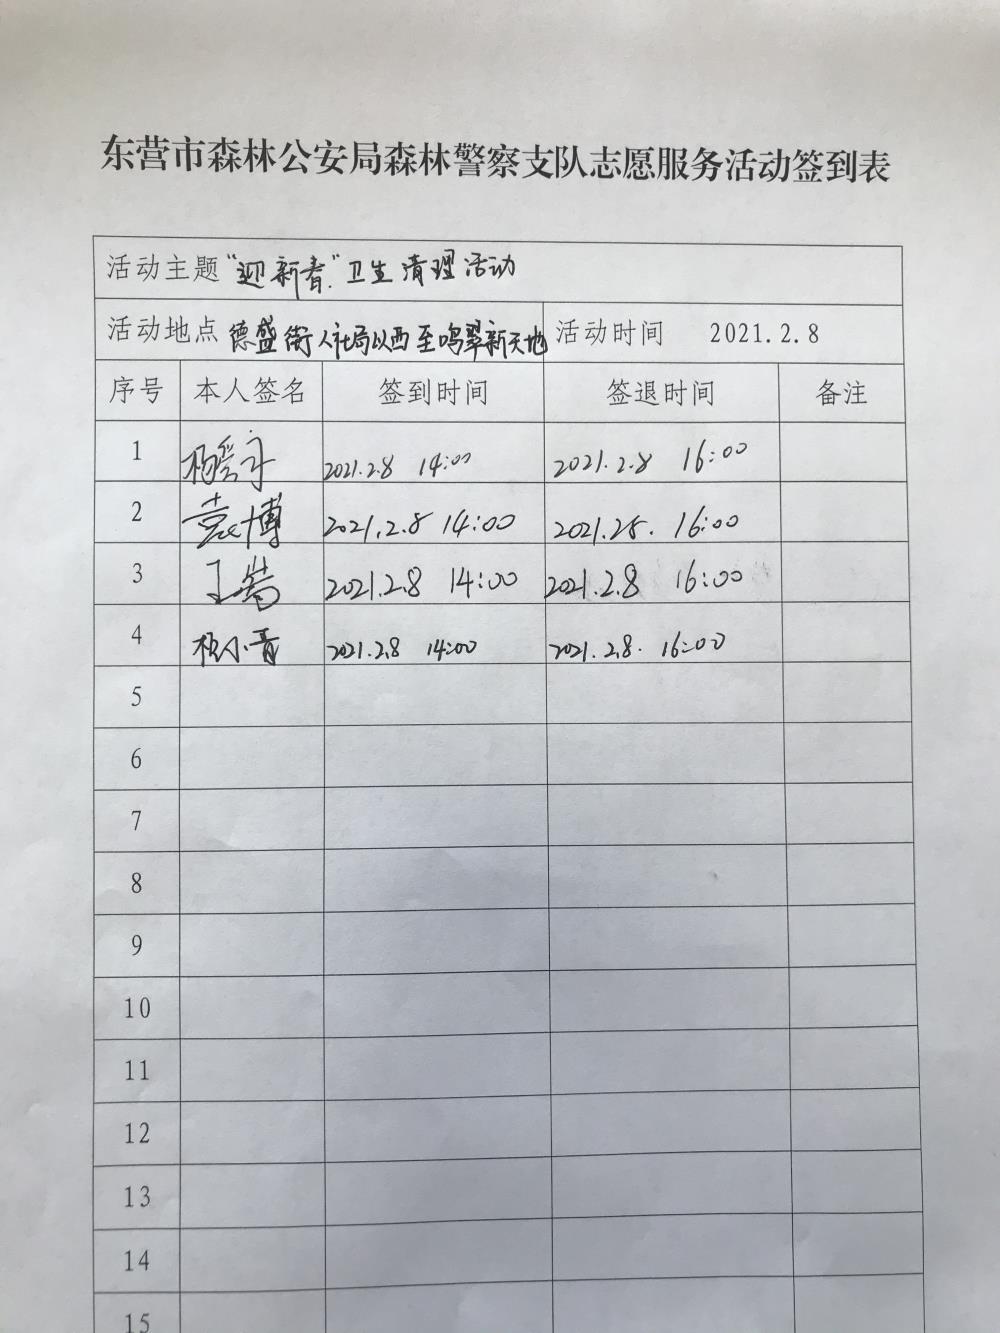 东营市森林公安局森林警察支队志愿服务活动签到表
活动主题 “迎新春”卫生清理活动
活动地点 德盛街人社局以西至鸣翠新天地 活动时间 2021.2.8
序号 本人签名 签到时间 签退时间 备注
1 2021.2.8 14:00 2021.2.8 16:00
2 袁博 2021.2.8 14:00 2021.28. 16:00
3 王嵩 2021.2.8 14:00 2021.2.8 16:00
4 2021.2.8 14:00 2021.2.8. 16:00
5
6
7
8
9
10
11
12
13
14
15